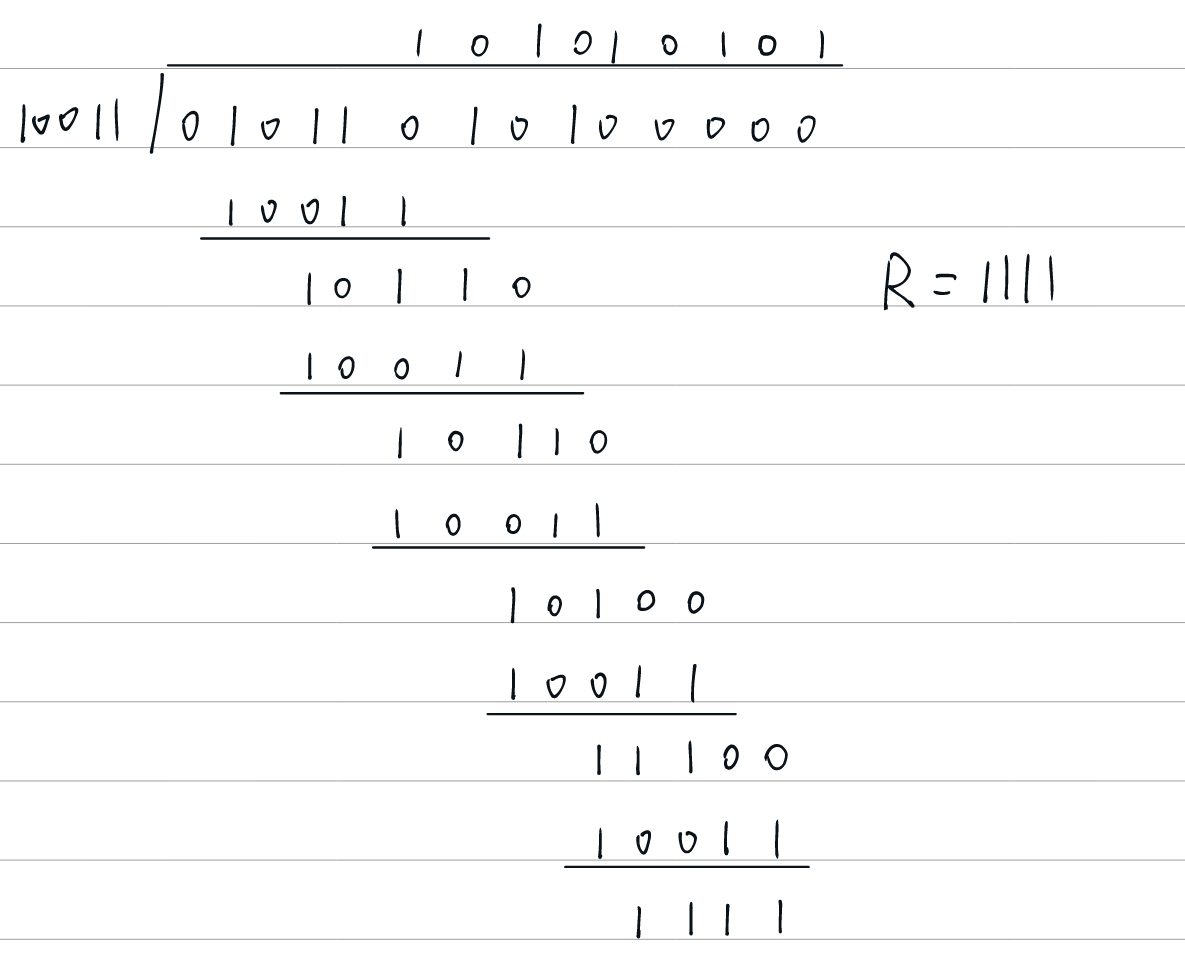 101010101
10011/01011010100000
10011
10110
R = 1111
10011
10110
10011
10100
10011
11100
10011
1111